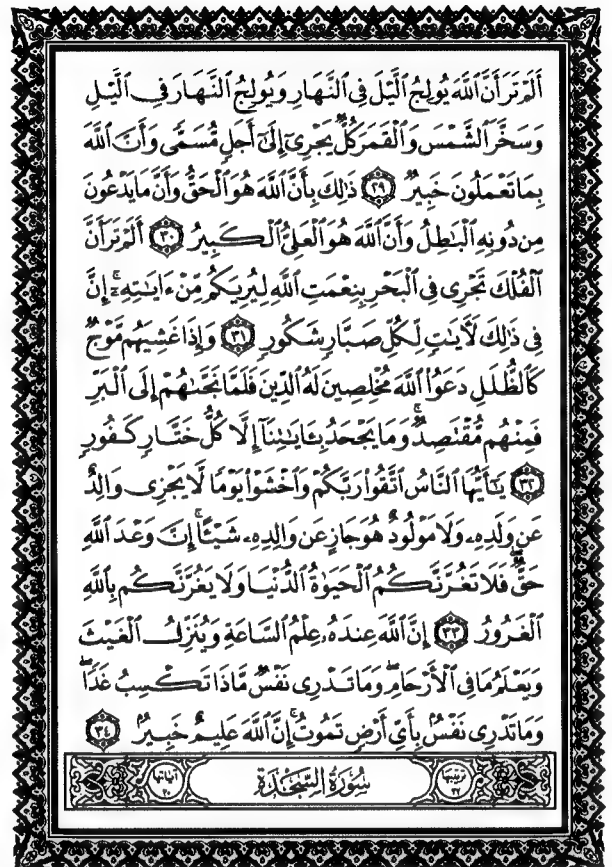 أَلَمۡ تَرَ أَنَّ ٱللَّهَ يُولِجُ ٱلَّيۡلَ فِي ٱلنَّهَارِ وَيُولِجُ ٱلنَّهَارَ فِي ٱلَّيۡلِ
وَسَخَّرَ ٱلشَّمۡسَ وَٱلۡقَمَرَۖ كُلّٞ يَجۡرِيٓ إِلَىٰٓ أَجَلٖ مُّسَمّٗى وَأَنَّ ٱللَّهَ
بِمَا تَعۡمَلُونَ خَبِيرٞ ٢٩ ذَٰلِكَ بِأَنَّ ٱللَّهَ هُوَ ٱلۡحَقُّ وَأَنَّ مَا يَدۡعُونَ
مِن دُونِهِ ٱلۡبَٰطِلُ وَأَنَّ ٱللَّهَ هُوَ ٱلۡعَلِيُّ ٱلۡكَبِيرُ ٣٠ أَلَمۡ تَرَ أَنَّ
ٱلۡفُلۡكَ تَجۡرِي فِي ٱلۡبَحۡرِ بِنِعۡمَتِ ٱللَّهِ لِيُرِيَكُم مِّنۡ ءَايَٰتِهِۦٓۚ إِنَّ
فِي ذَٰلِكَ لَأٓيَٰتٖ لِّكُلِّ صَبَّارٖ شَكُورٖ ٣١ وَإِذَا غَشِيَهُم مَّوۡجٞ
كَٱلظُّلَلِ دَعَوُاْ ٱللَّهَ مُخۡلِصِينَ لَهُ ٱلدِّينَ فَلَمَّا نَجَّىٰهُمۡ إِلَى ٱلۡبَرِّ
فَمِنۡهُم مُّقۡتَصِدٞۚ وَمَا يَجۡحَدُ بِـَٔايَٰتِنَآ إِلَّا كُلُّ خَتَّارٖ كَفُورٖ
٣٢ يَٰٓأَيُّهَا ٱلنَّاسُ ٱتَّقُواْ رَبَّكُمۡ وَٱخۡشَوۡاْ يَوۡمٗا لَّا يَجۡزِي وَالِدٌ
عَن وَلَدِهِۦ وَلَا مَوۡلُودٌ هُوَ جَازٍ عَن وَالِدِهِۦ شَيۡـًٔاۚ إِنَّ وَعۡدَ ٱللَّهِ
حَقّٞۖ فَلَا تَغُرَّنَّكُمُ ٱلۡحَيَوٰةُ ٱلدُّنۡيَا وَلَا يَغُرَّنَّكُم بِٱللَّهِ
ٱلۡغَرُورُ ٣٣ إِنَّ ٱللَّهَ عِندَهُۥ عِلۡمُ ٱلسَّاعَةِ وَيُنَزِّلُ ٱلۡغَيۡثَ
وَيَعۡلَمُ مَا فِي ٱلۡأَرۡحَامِۖ وَمَا تَدۡرِي نَفۡسٞ مَّاذَا تَكۡسِبُ غَدٗاۖ
وَمَا تَدۡرِي نَفۡسُۢ بِأَيِّ أَرۡضٖ تَمُوتُۚ إِنَّ ٱللَّهَ عَلِيمٌ خَبِيرُۢ ٣٤
ترتيبها ٣٢ سُورَةُ السَّجۡدَةِ آياتها ٣٠